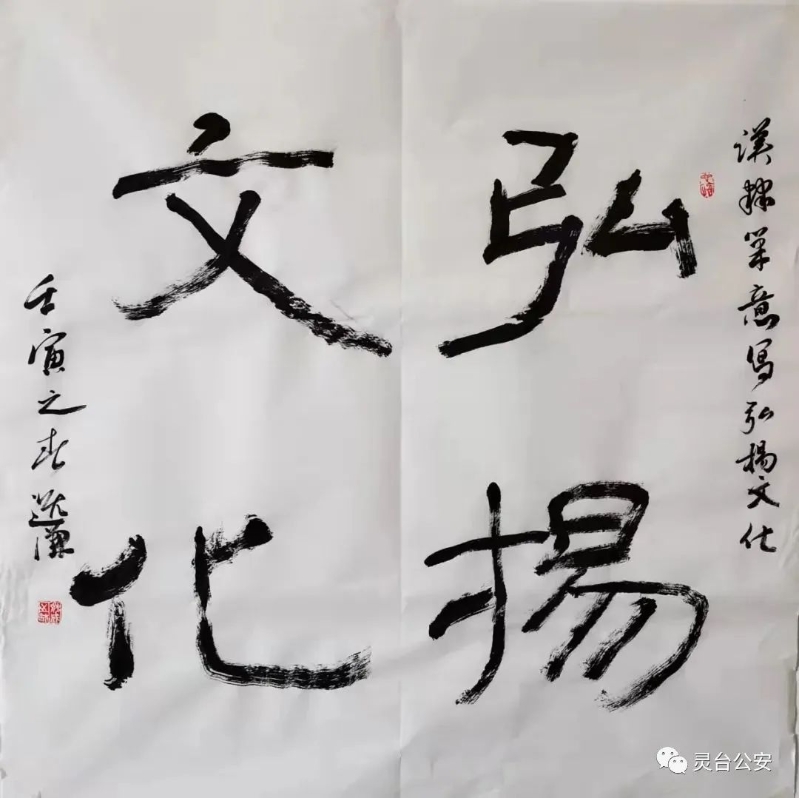 漢隸筆意寫弘揚文化
弘揚
文化
壬寅之春逸渾
灵台公安